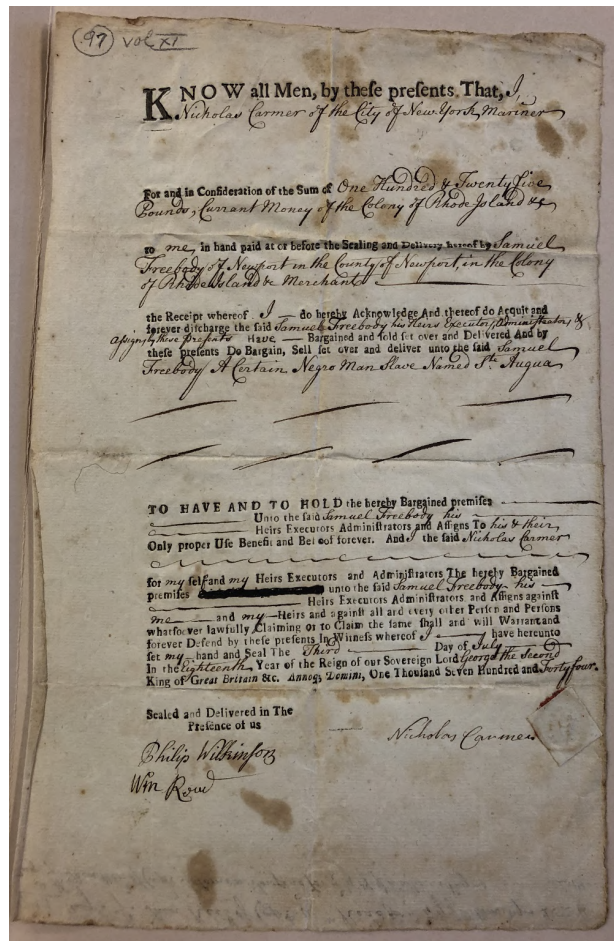 97 Vol XI
KNOW all Men, by these presents That, I,
Nicholas Carmer of the City of New York, Mariner
For and in Consideration of the Sum of One Hundred & Twenty five
Pounds, Currant Money of the Colony of Rhode Island &c
to me, in hand paid at or before the Sealing and Delivery hereof by Samuel
Freebody of Newport in the County of Newport, in the Colony
of Rhode Island &c Merchant
the Receipt whereof I do hereby Acknowledge And thereof do Acquit and
forever discharge the said Samuel Freebody his Heirs Executors, Administrators &
Assigns, by these presents Have Bargained and sold set over and Delivered And by
these presents Do Bargain, Sell set over and deliver unto the said Samuel
Freebody A Certain Negro Man Slave Named St. Augua
TO HAVE AND TO HOLD the hereby Bargained premises
Unto the said Samuel Freebody his
Heirs Executors Administrators and Assigns To his & their
Only proper Use Benefit and Behoof forever. And I the said Nicholas Carmer
for my self and my Heirs Executors and Administrators The hereby Bargained
premises unto the said Samuel Freebody his
Heirs Executors Administrators and Assigns against
me and my Heirs and against all and every other Person and Persons
whatsoever lawfully Claiming or to Claim the same shall and will Warrant and
forever Defend by these presents In Witness whereof I have hereunto
set my hand and Seal The Third Day of July
In the Eighteenth Year of the Reign of our Sovereign Lord George the Second
King of Great Britain &c. Annoq; Domini, One Thousand Seven Hundred and Forty four.
Sealed and Delivered in The
Presence of us
Nicholas Carmer
Philip Wilkinson
Wm Roud